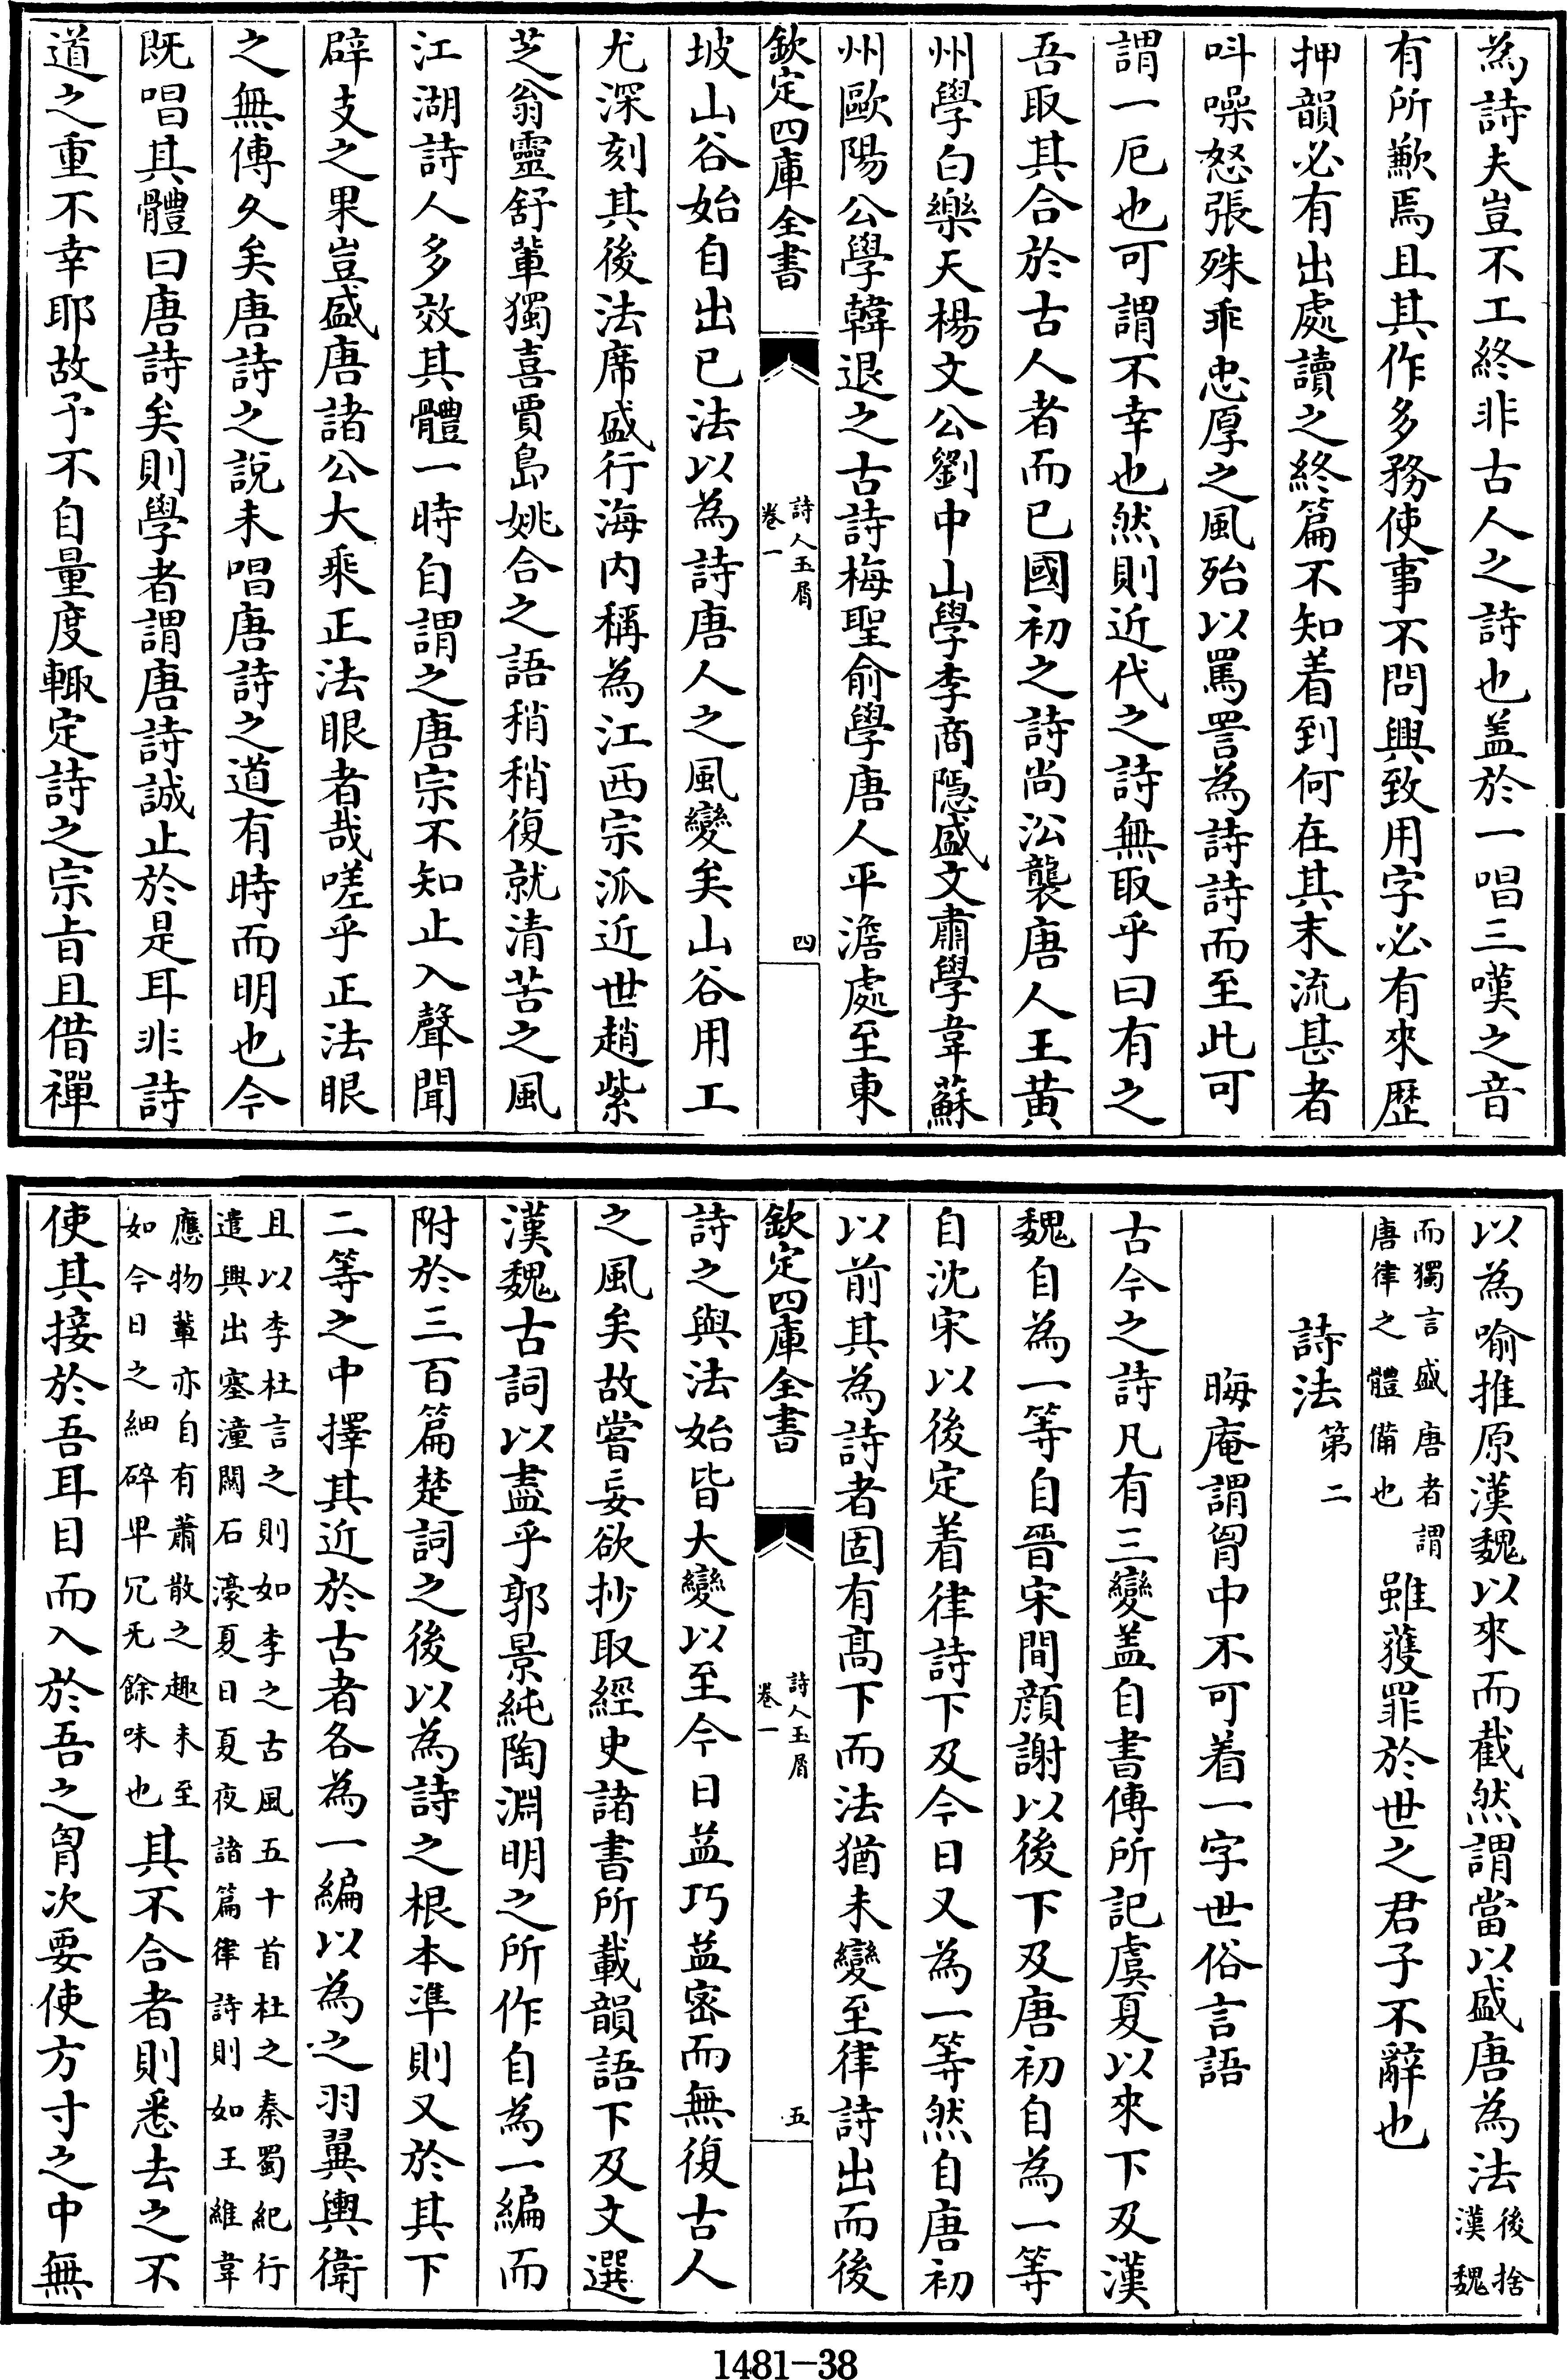 為詩夫豈不工終非古人之詩也盖於一唱三嘆之音
有所歉焉且其作多務使事不問興致用字必有來歴
押韻必有出處讀之終篇不知着到何在其末流甚者
呌噪怒張殊乖忠厚之風殆以罵詈為詩詩而至此可
謂一厄也可謂不幸也然則近代之詩無取乎曰有之
吾取其合於古人者而已國初之詩尚㳂襲唐人王黄
州學白樂天楊文公劉中山學李商隠盛文肅學韋蘇
州歐陽公學韓退之古詩梅聖俞學唐人平澹處至東
欽定四庫全書
詩人玉屑
卷一
四
坡山谷始自出已法以為詩唐人之風變矣山谷用工
尤深刻其後法席盛行海内稱為江西宗派近世趙紫
芝翁靈舒輩獨喜賈島姚合之語稍稍復就清苦之風
江湖詩人多效其體一時自謂之唐宗不知止入聲聞
辟支之果豈盛唐諸公大乘正法眼者哉嗟乎正法眼
之無傳乆矣唐詩之說未唱唐詩之道有時而明也今
既唱其體曰唐詩矣則學者謂唐詩誠止於是耳非詩
道之重不幸耶故予不自量度輙定詩之宗㫖且借禪
以為喻推原漢魏以來而截然謂當以盛唐為法後捨漢魏
而獨言盛唐者謂唐律之體備也雖獲罪於世之君子不辭也
詩法第二
晦庵謂胷中不可着一字世俗言語
古今之詩凡有三變盖自書傳所記虞夏以來下及漢
魏自為一等自晉宋間顔謝以後下及唐初自為一等
自沈宋以後定着律詩下及今日又為一等然自唐初
以前其為詩者固有髙下而法猶未變至律詩出而後
欽定四庫全書
詩人玉屑
卷一
五
詩之與法始皆大變以至今日益巧益密而無復古人
之風矣故嘗妄欲抄取經史諸書所載韻語下及文選
漢魏古詞以盡乎郭景純陶淵明之所作自為一編而
附於三百篇楚詞之後以為詩之根本凖則又於其下
二等之中擇其近於古者各為一編以為之羽翼輿衛
且以李杜言之則如李之古風五十首杜之秦蜀紀行遣興出塞潼關石濠夏日夏夜諸篇律詩則如王維韋
應物輩亦自有蕭散之趣未至如今日之細碎卑冗无餘味也其不合者則悉去之不
使其接於吾耳目而入於吾之胷次要使方寸之中無
1481-38